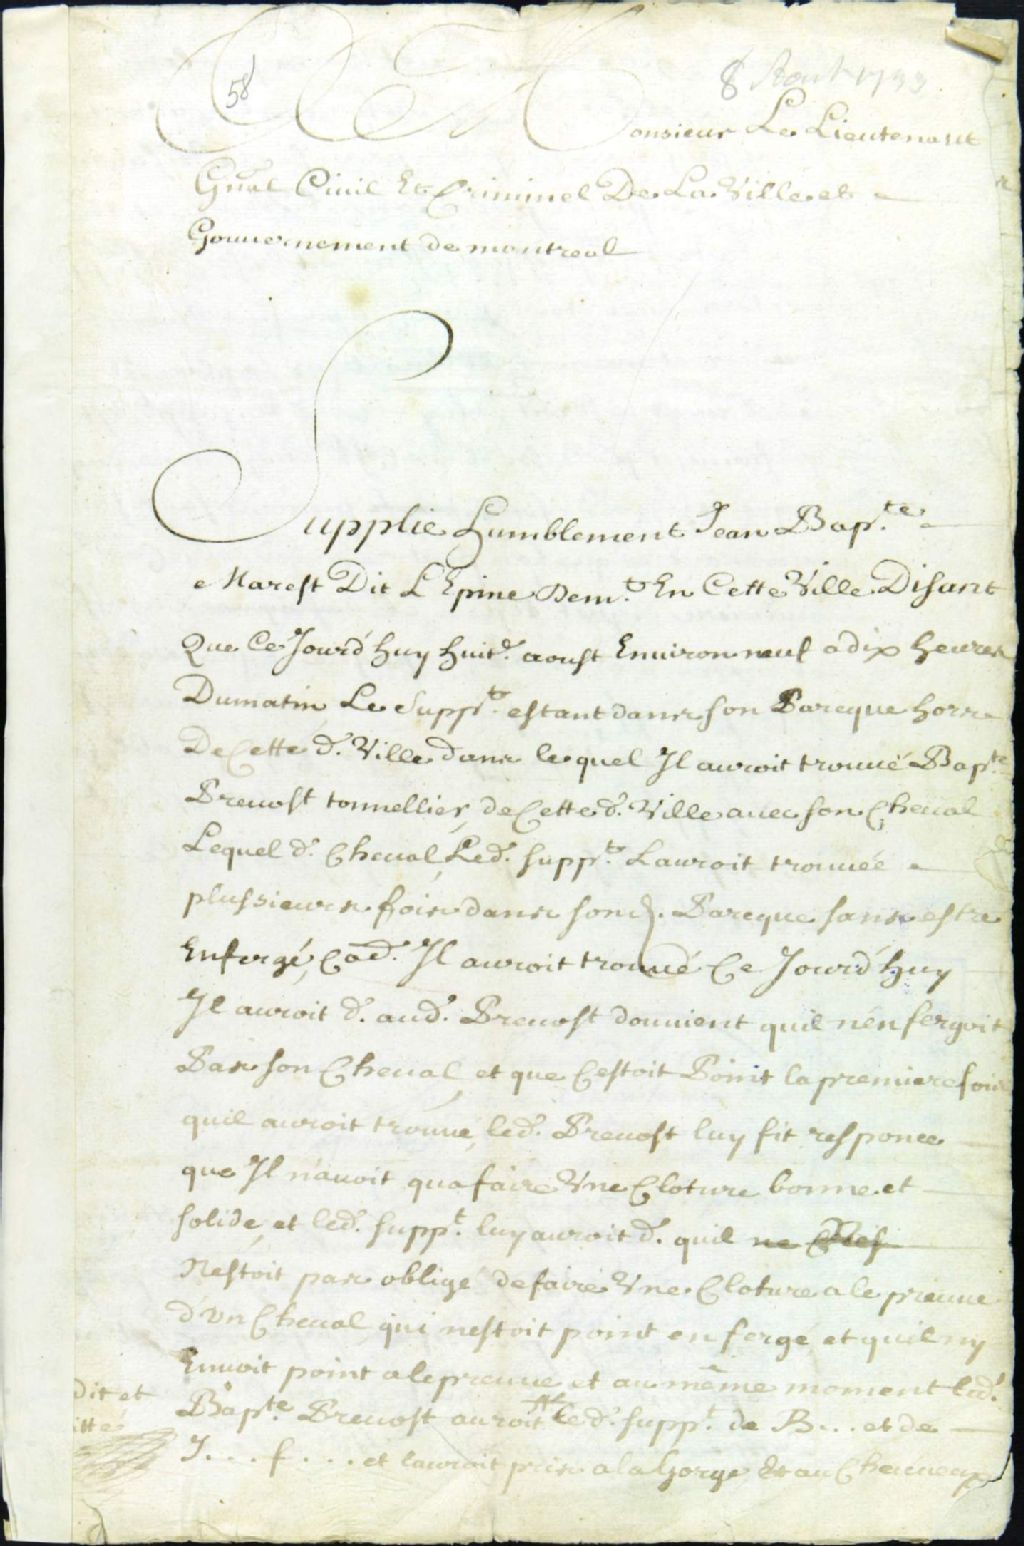 58
8 Aout 1733
A Monsieur Le Lieutenant
Gñal Ciuil Et Criminel De La Ville et
Gouuernement de montreal
Supplie humblement Jean Bapte
Marest Dit L'Epine Demt En Cette Ville Disant
Que Ce Jourd'huy huitе aoust Enuiron neuf a dix heures
Du matin Le Suppt estant dans son Parcque hors
De Cette d. Ville dans lequel Il auroit trouué Bapte
Preuost tonnellier de Cette d. Ville auec son Cheual
Lequel d. Cheual, Led. suppt Lauroit trouuée
plussieurs fois dans sond. Parcque sans estre
Enfergé, Il auroit trouué Ce Jourd'huy
Il auroit d. aud. Preuost douuient quil nenfergoit
Pas son Cheual, et que Cestoit Point la premiere fois
quil auroit trouué, led. Preuost luy fit responce
que Il n'auoit qua faire Vne Cloture bonne et
solide, et led. suppt luy auroit d. quil ne
Nestoit pas obligé de faire Vne Cloture a lepreuue
d'Vn Cheual qui nestoit point enferge et quil ny
Enuoit point a lepreuue et au même moment led.
Bapte Preuost auroit led. suppt de B... et de
J... f.... et lauroit pris a la Gorge Et au Cheueux
dit et